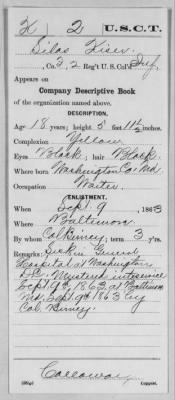 K 2 U.S.C.T.
Silas Kiser
, Co. 3, 2 Reg't U. S. Col'd Inf.
Appears on
Company Descriptive Book
of the organization named above.
DESCRIPTION.
Age 18 years; height 5 feet 11½ inches.
Complexion Yellow
Eyes Black; hair Black
Where born Washington Co. Md.
Occupation Waiter
ENLISTMENT.
When Sept. 9, 1863
Where Baltimore
By whom Col. Birney; term 3 y'rs.
Remarks: Sick in General
Hospital at Washington,
D.C. Mustered in service
Sept. 9th 1863, at Baltimore
Md. Sept. 9th 1863 by
Col. Birney.
Calloway
Copyist.